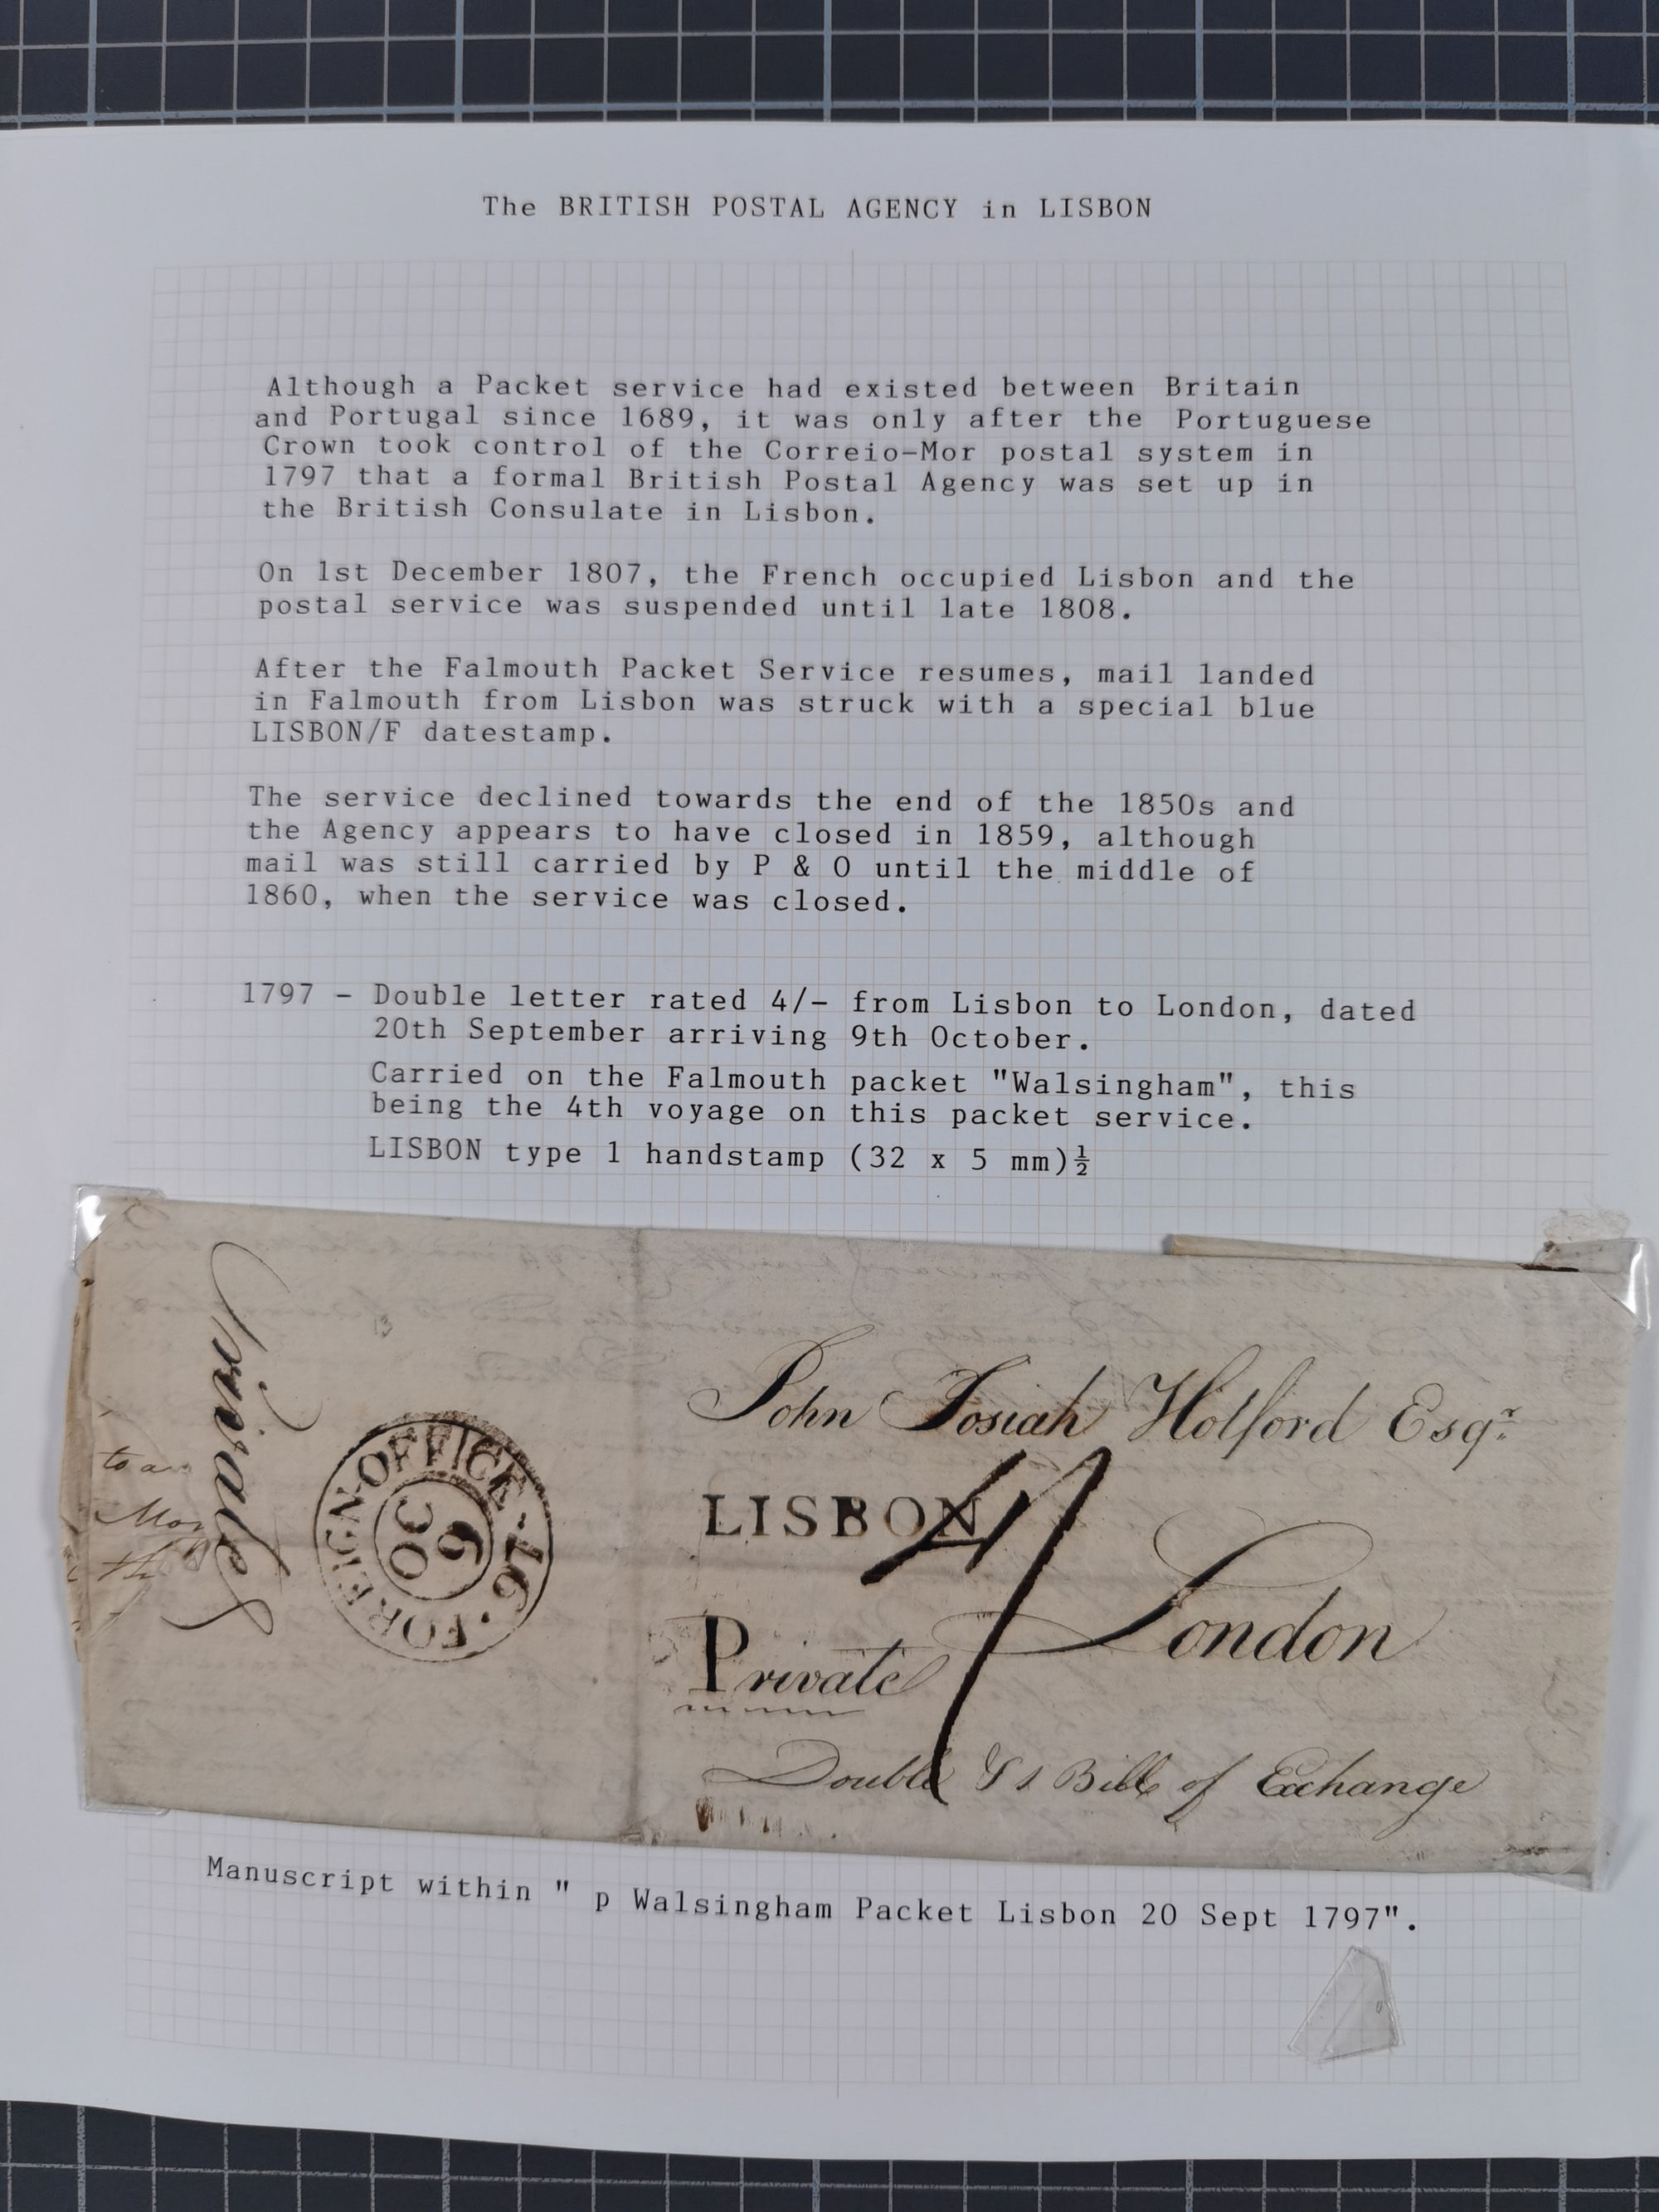 The BRITISH POSTAL AGENCY in LISBON
Although a Packet service had existed between Britain
and Portugal since 1689, it was only after the Portuguese
Crown took control of the Correio-Mor postal system in
1797 that a formal British Postal Agency was set up in
the British Consulate in Lisbon.
On 1st December 1807, the French occupied Lisbon and the
postal service was suspended until late 1808.
After the Falmouth Packet Service resumes, mail landed
in Falmouth from Lisbon was struck with a special blue
LISBON/F datestamp.
The service declined towards the end of the 1850s and
the Agency appears to have closed in 1859, although
mail was still carried by P & O until the middle of
1860, when the service was closed.
1797 - Double letter rated 4/- from Lisbon to London, dated
20th September arriving 9th October.
Carried on the Falmouth packet "Walsingham", this
being the 4th voyage on this packet service.
LISBON type 1 handstamp (32 x 5 mm)½
Private
to a
FOREIGN-OFFICE-97.
OC
9
John Josiah Holford Esqr.
LISBON
4/
London
Private
Double & 1 Bill of Exchange
Manuscript within " p Walsingham Packet Lisbon 20 Sept 1797".